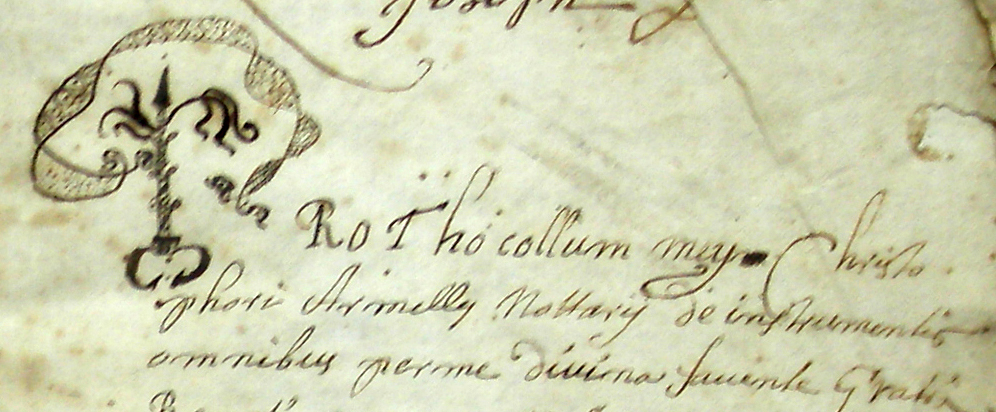 Joseph
PRoThócollum mey Christo
phori Armelly Nottarij de instrumentis
omnibus per me divina favente Gratia